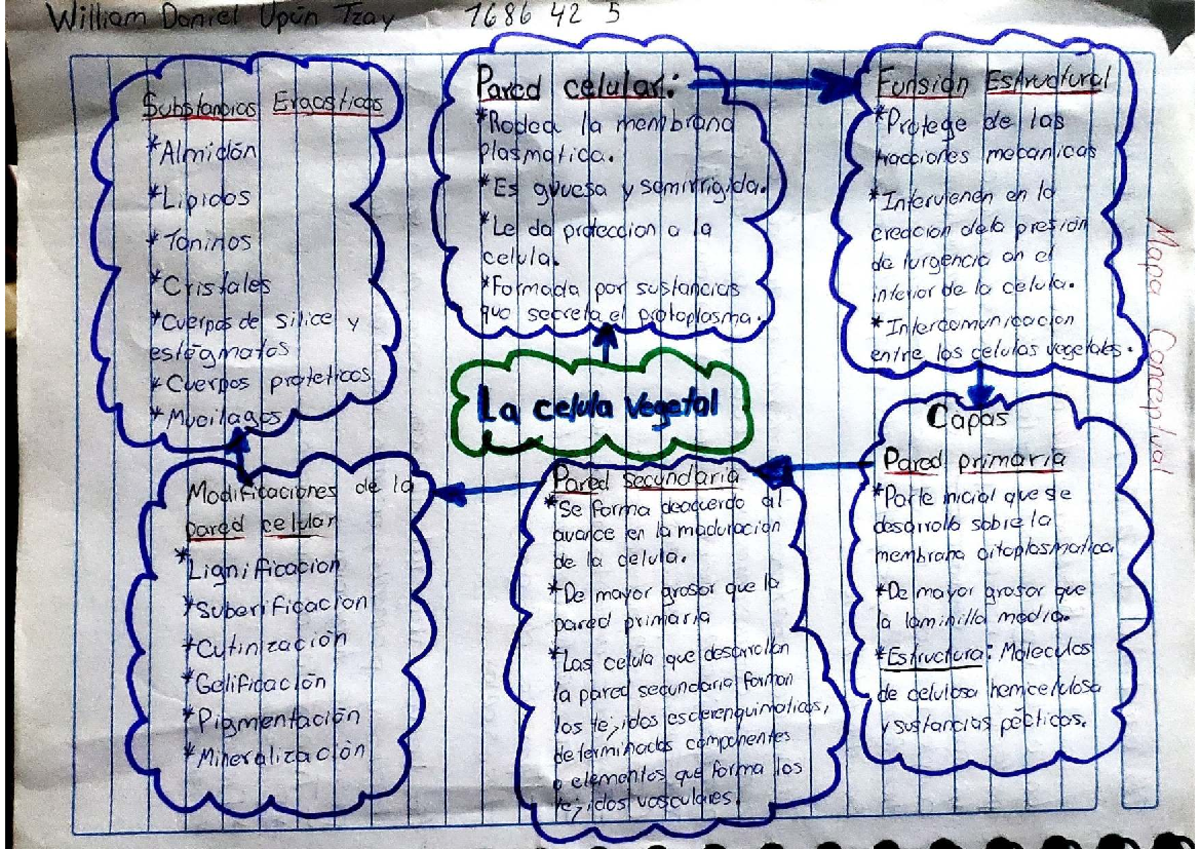 William Daniel Upún Tzay 1686 42 5
Substancias Ergasticas
*Almidón
*Lipidos
*Taninos
*Cristales
*Cuerpos de silice y
estégmatos
*Cuerpos proteticos
*Mucilagos
Pared celular:
*Rodea la membrana
plasmatica.
*Es gruesa y semirrigida.
*Le da proteccion a la
celula.
*Formada por sustancias
que secreta el protoplasma.
Funsión Estructural
*Protege de las
tracciones mecanicas
*Intervienen en la
creacion de la presión
de turgencia en el
interior de la celula.
*Intercomunicacion
entre las celulas vegetales.
Mapa Conceptual
La celula vegetal
Capas
Pared primaria
*Parte inicial que se
desarrolla sobre la
membrana citoplasmatica
*De mayor grosor que
la laminilla media.
*Estructura: Moleculas
de celulosa hemicelulosa
y sustancias pécticas.
Pared secundaria
*Se forma deacuerdo al
avance en la maduración
de la celula.
*De mayor grosor que la
pared primaria
*Las celula que desarrollan
la pared secundaria forman
los tejidos esclerenquimaticos,
determinados componentes
o elementos que forma los
tejidos vasculares.
Modificaciones de la
pared celular
*Lignificacion
*Suberificacion
*Cutinización
*Gelificación
*Pigmentación
*Mineralización